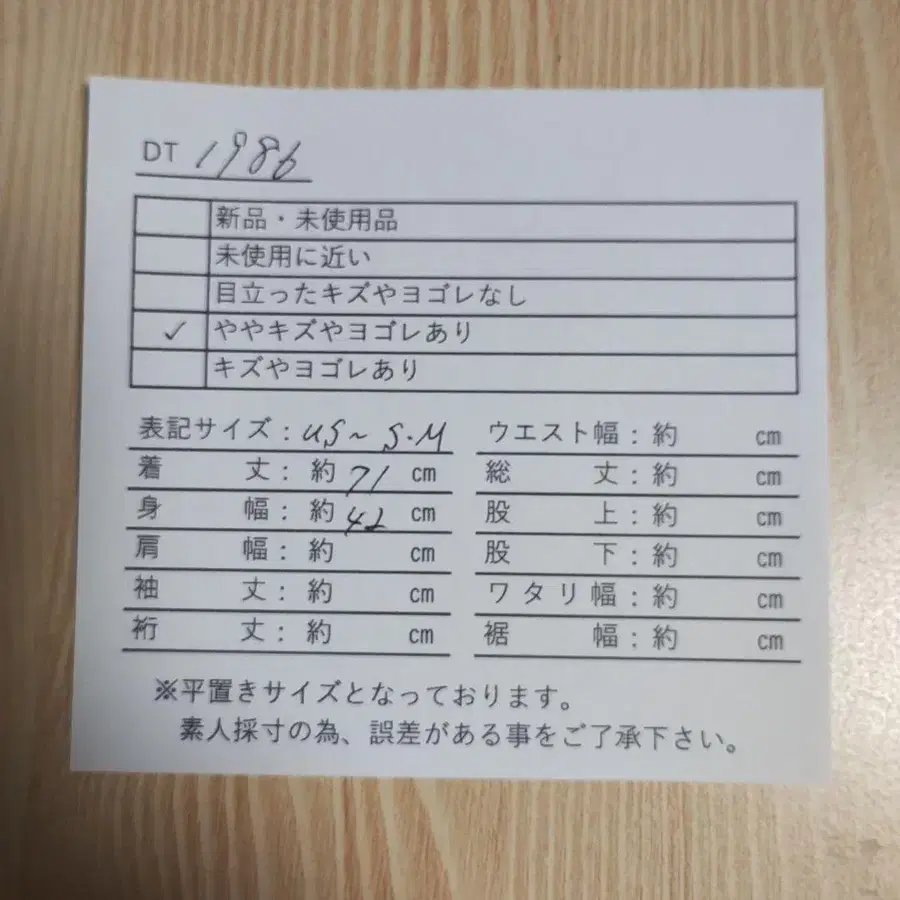 DT 1986
新品・未使用品
未使用に近い
目立ったキズやヨゴレなし
✓ ややキズやヨゴレあり
キズやヨゴレあり
表記サイズ：US~ S·M
着丈：約71cm
身幅：約42cm
肩幅：約 cm
袖丈：約 cm
裄丈：約 cm
ウエスト幅：約 cm
総丈：約 cm
股上：約 cm
股下：約 cm
ワタリ幅：約 cm
裾幅：約 cm
※平置きサイズとなっております。
素人採寸の為、誤差がある事をご了承下さい。